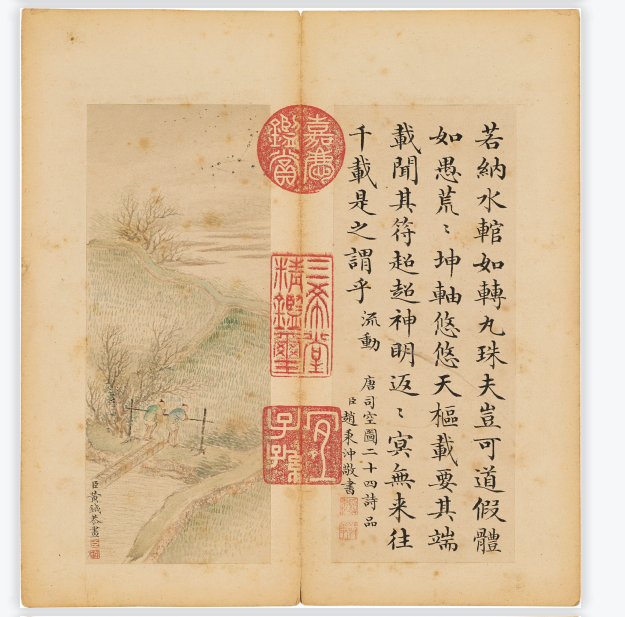 若納水輨如轉丸珠夫豈可道假體
如愚荒〻坤軸悠悠天樞載要其端
載聞其符超超神明返〻冥無来往
千載是之謂乎 流動
唐司空圖二十四詩品
臣趙秉沖敬書
嘉慶
鑑賞
三希堂
精鑑璽
宜
子孫
臣黃鉞恭畫